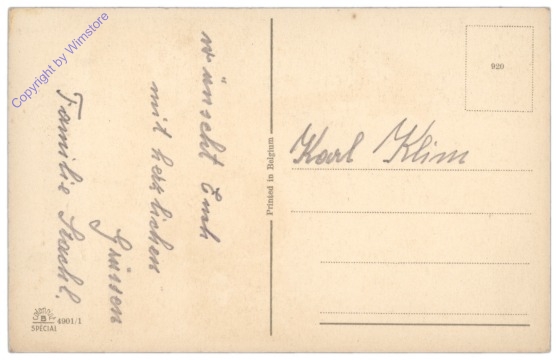 Copyright by Wimstore
wünscht Euch
mit herzlichen
Grüssen
Familie Stachl.
Printed in Belgium
920
Karl Klim
B
SPÉCIAL
4901/1